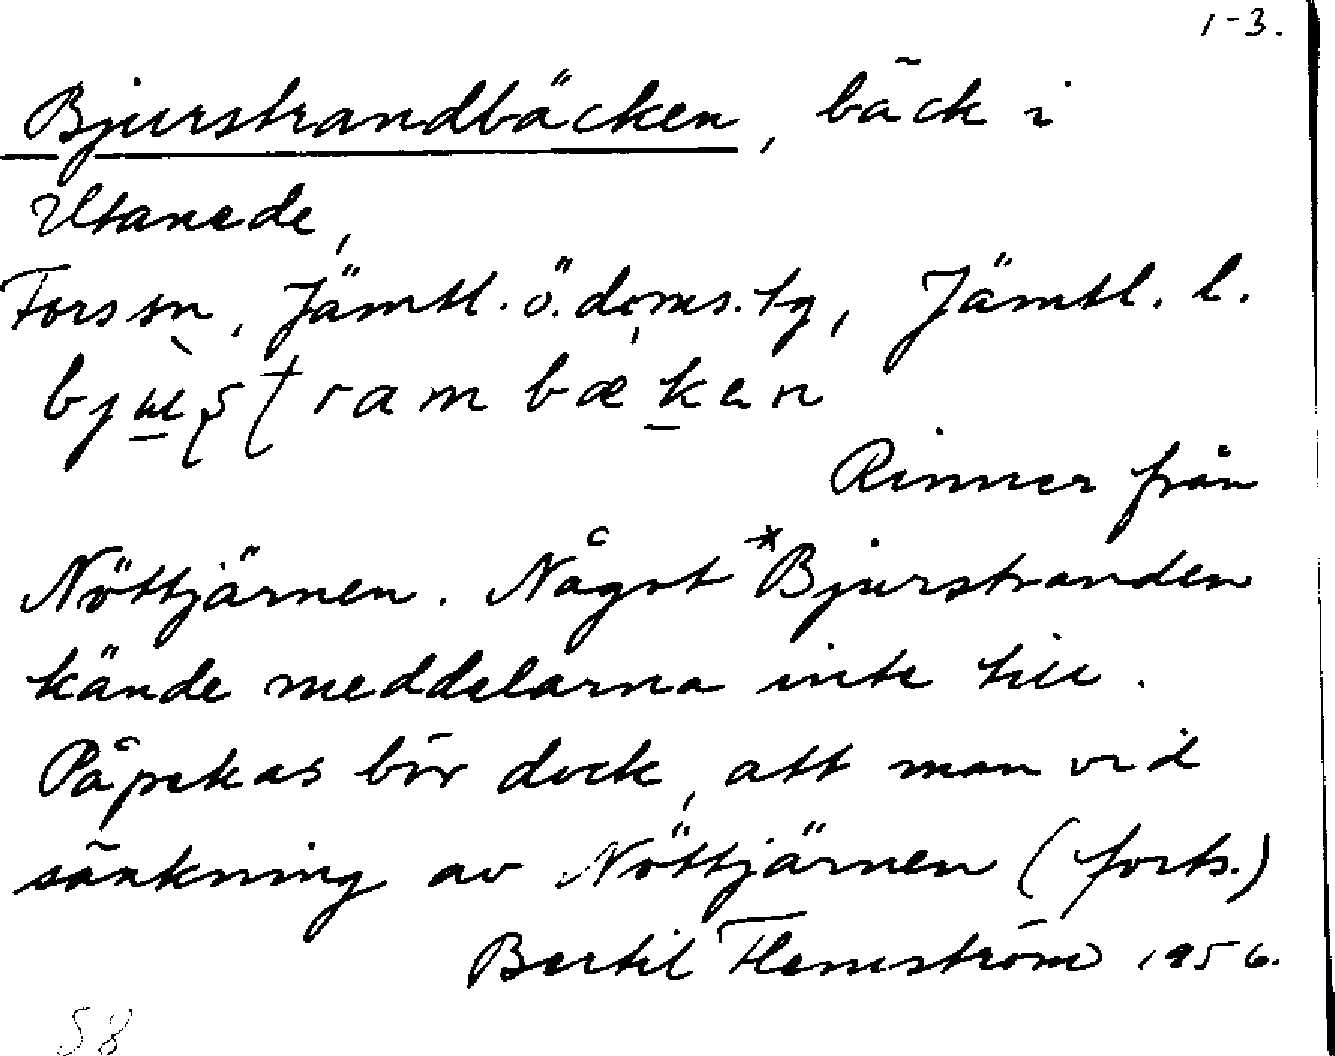 1-3.
Bjurstrandbäcken, bäck i
Utanede,
Fors sn, Jämtl. ö. doms. tg, Jämtl. l.
Rinner från
Nöttjärnen. Något *Bjurstranden
kände meddelarna inte till.
Påpekas bör dock, att man vid
sänkning av Nöttjärnen (forts.)
Bertil Flemström 1956.
58